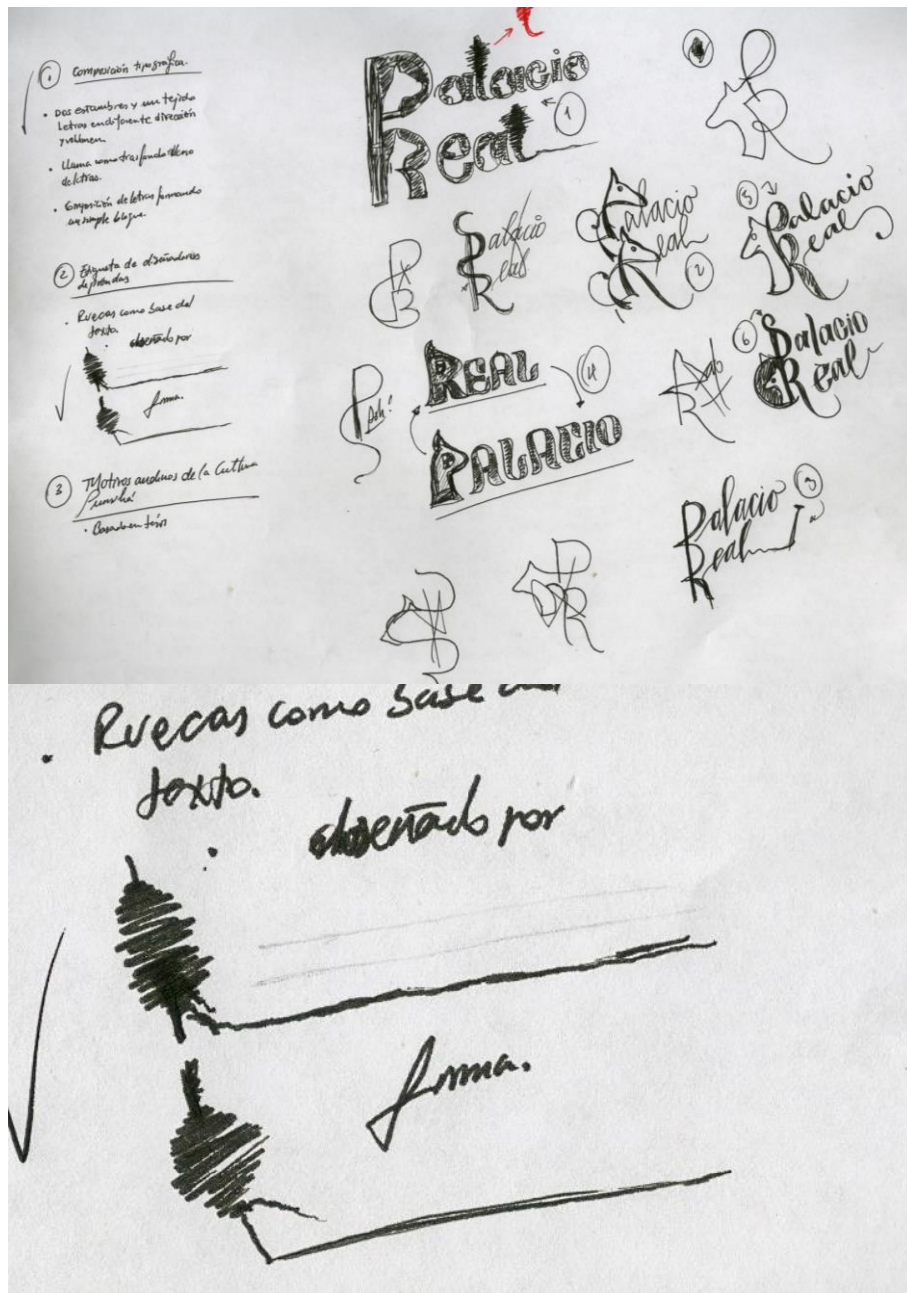 1 Composición tipográfica.
• Dos estambres y un tejido
Letras en diferente dirección
y volumen.
• Llama como trasfondo
de letras.
• Composición de letras formando
un simple bloque.
2 Etiqueta de diseñadores
de prendas
• Ruecas como base del
texto.
diseñado por
firma.
3 Motivos andinos de la Cultura
Puruhá
• Basado en
Palacio
Real
1
Palacio
Real
Palacio
Real
2
5
Palacio
Real
REAL
4
PALACIO
6
Palacio
Real
Palacio
Real
3
• Ruecas como base del
texto.
diseñado por
firma.